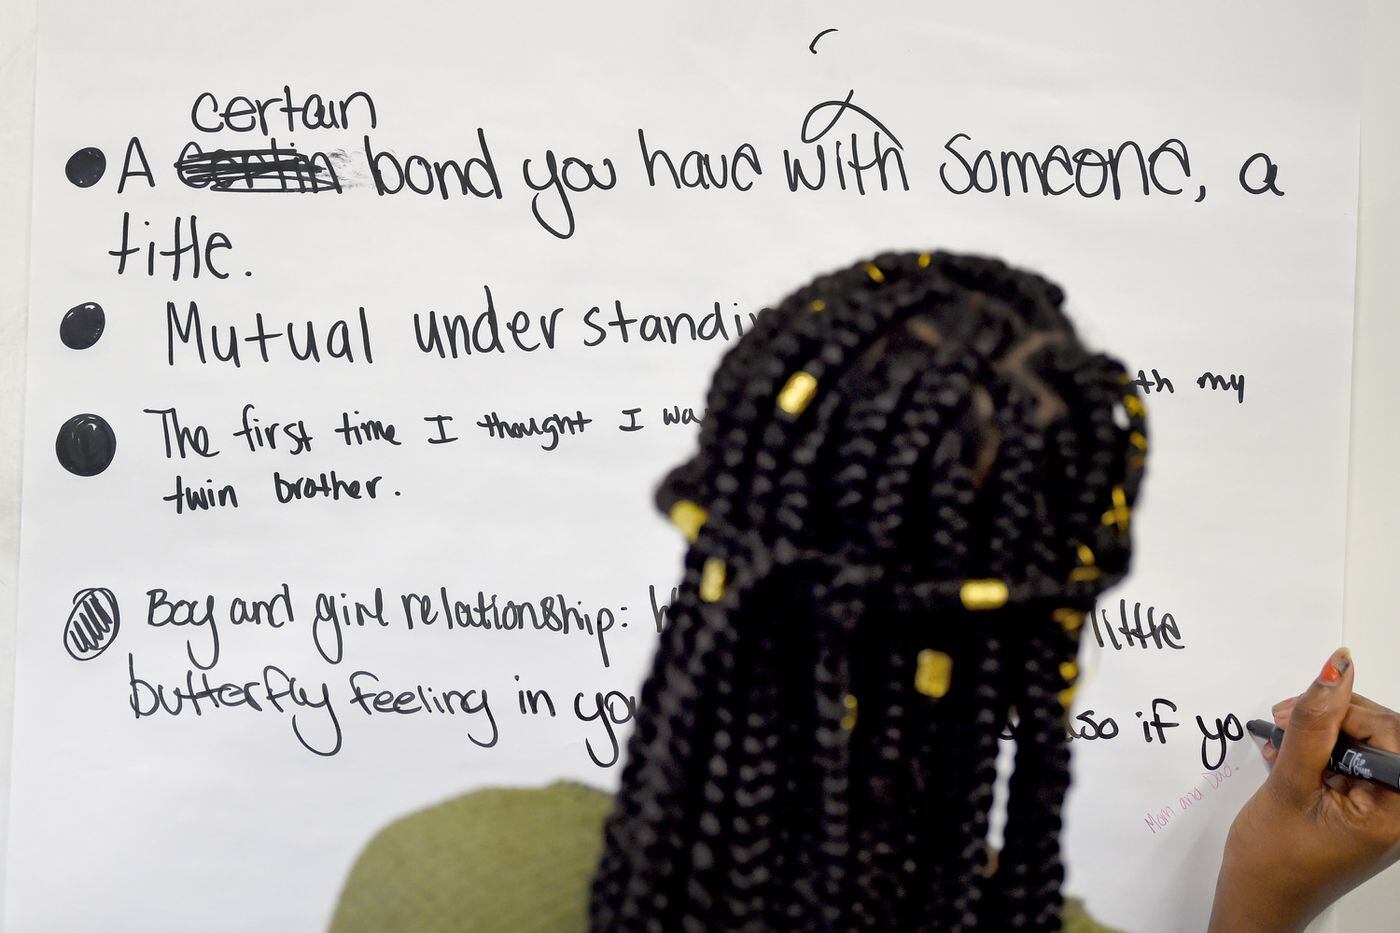 certain
A bond you have with someone, a
title.
Mutual under standin
The first time I thought I wa th my
twin brother.
Boy and girl relationship: little
butterfly feeling in yo so if yo
Mom and Dad.